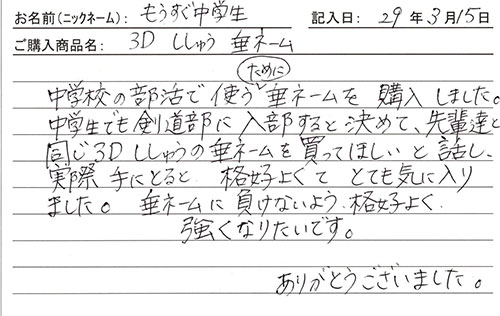 お名前(ニックネーム): もうすぐ中学生 記入日: 29年3月15日
ご購入商品名: 3D ししゅう 垂ネーム
ために
中学校の部活で使う垂ネームを購入しました。
中学生でも剣道部に入部すると決めて、先輩達と
同じ3Dししゅうの垂ネームを買ってほしいと話し、
実際手にとると 格好よくて とても気に入り
ました。 垂ネームに負けないよう、格好よく、
強くなりたいです。
ありがとうございました。